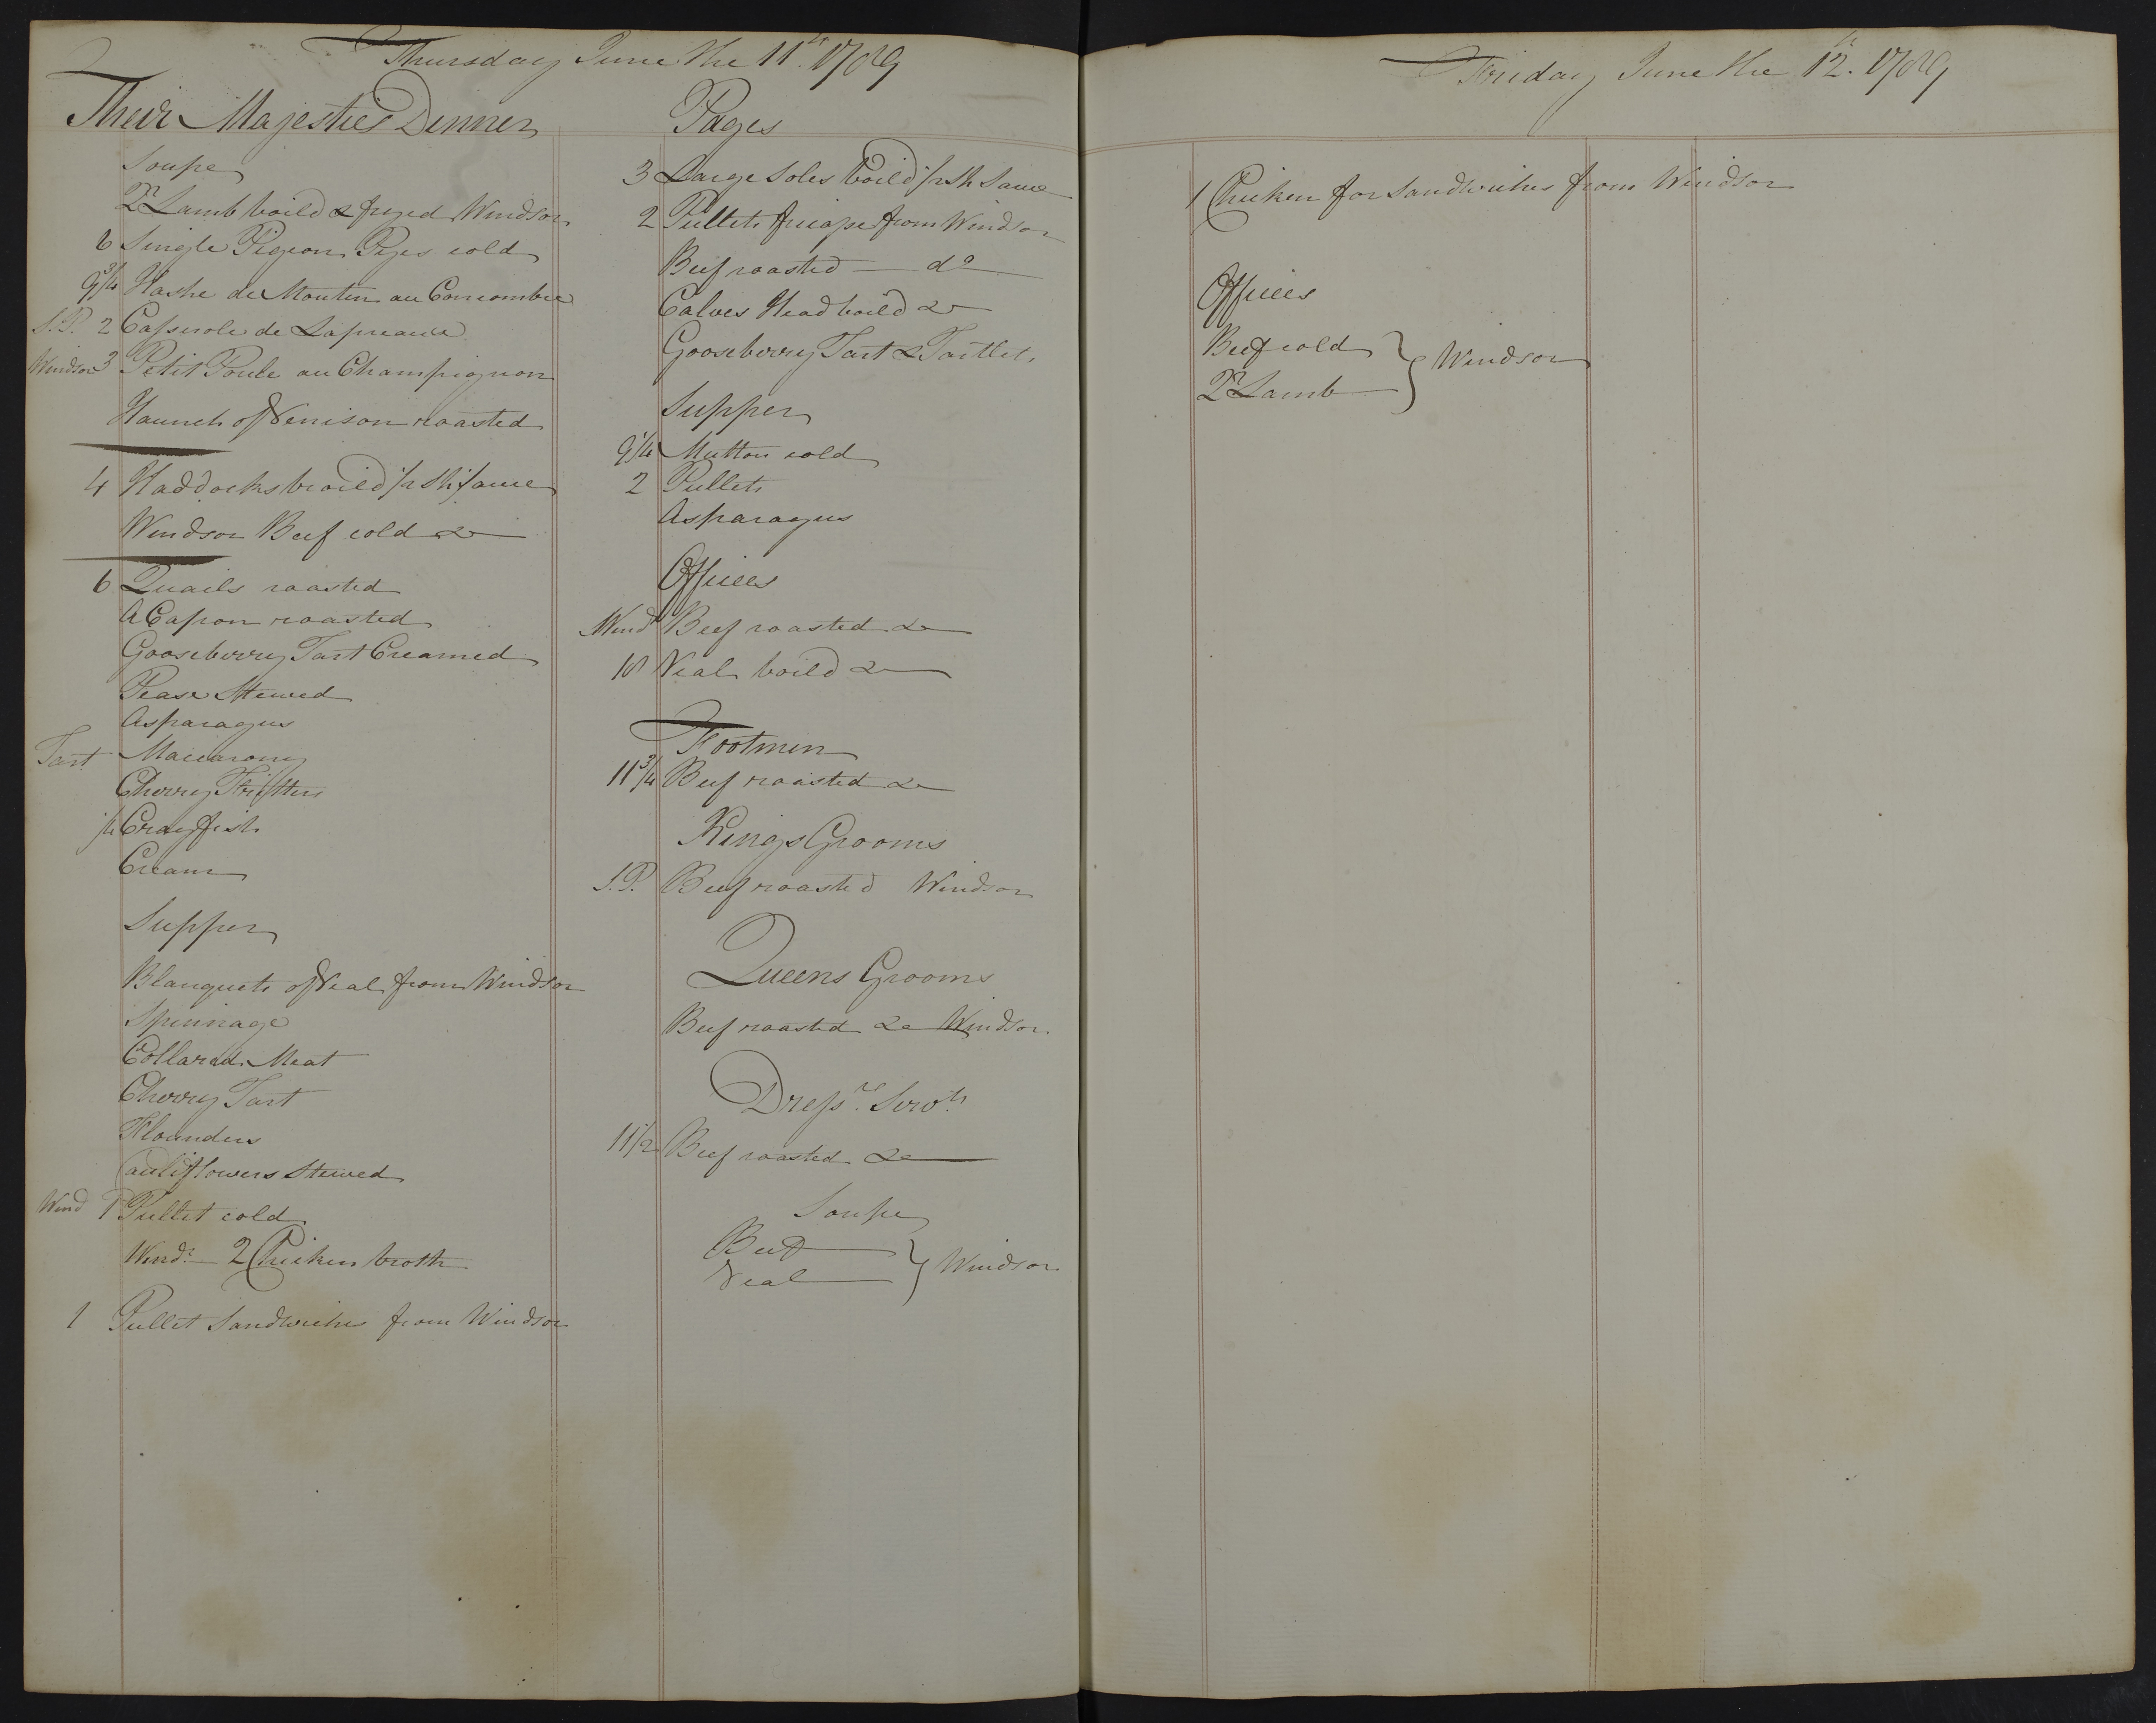 Thursday June the 11th. 1789
Their Majesties Dinner
Soupe
Qr Lamb boild & fryed Windsor
6 Single Pigeon Pyes cold
9 3/4 Hashe de Mouton au Concombre
S.P. 2 Casserole de Lapreaux
Windsor 3 Petit Poule au Champignon
Haunch of Venison roasted
4 Haddocks broild 1/2 Sh: Sauce
Windsor Beef cold &
6 Quails roasted
A Capon roasted
Gooseberry Tart Creamed
Pease Stewed
Asparagus
Tart Maccarony
Cherry Fritters
1/4 Crayfish
Cream
Supper
Blanquets of Veal from Windsor
Spinnage
Collared Meat
Cherry Tart
Flounders
Cauliflowers Stewed
Wind 1 Pullet cold
Windr 2 Chicken broth
1 Pullet Sandwiches from Windsor
Pages
3 Large Soles boild 1/2 Sh Sauce
2 Pullets fricasse from Windsor
Beef roasted do
Calves Head boild &
Gooseberry Tart & Tartlets
Supper
9 1/4 Mutton cold
2 Pullets
Asparagus
Offices
Windr Beef roasted &
18 Veal boild &
Footmen
11 3/4 Beef roasted &
Kings Grooms
S.P. Beef roasted Windsor
Queens Grooms
Beef roasted & Windsor
Dressrs. Servts.
11 1/2 Beef roasted &
Soupe
Beef
Veal } Windsor
Friday June the 12th. 1789
1 Chicken for Sandwiches from Windsor
Offices
Beef cold
Qr Lamb } Windsor